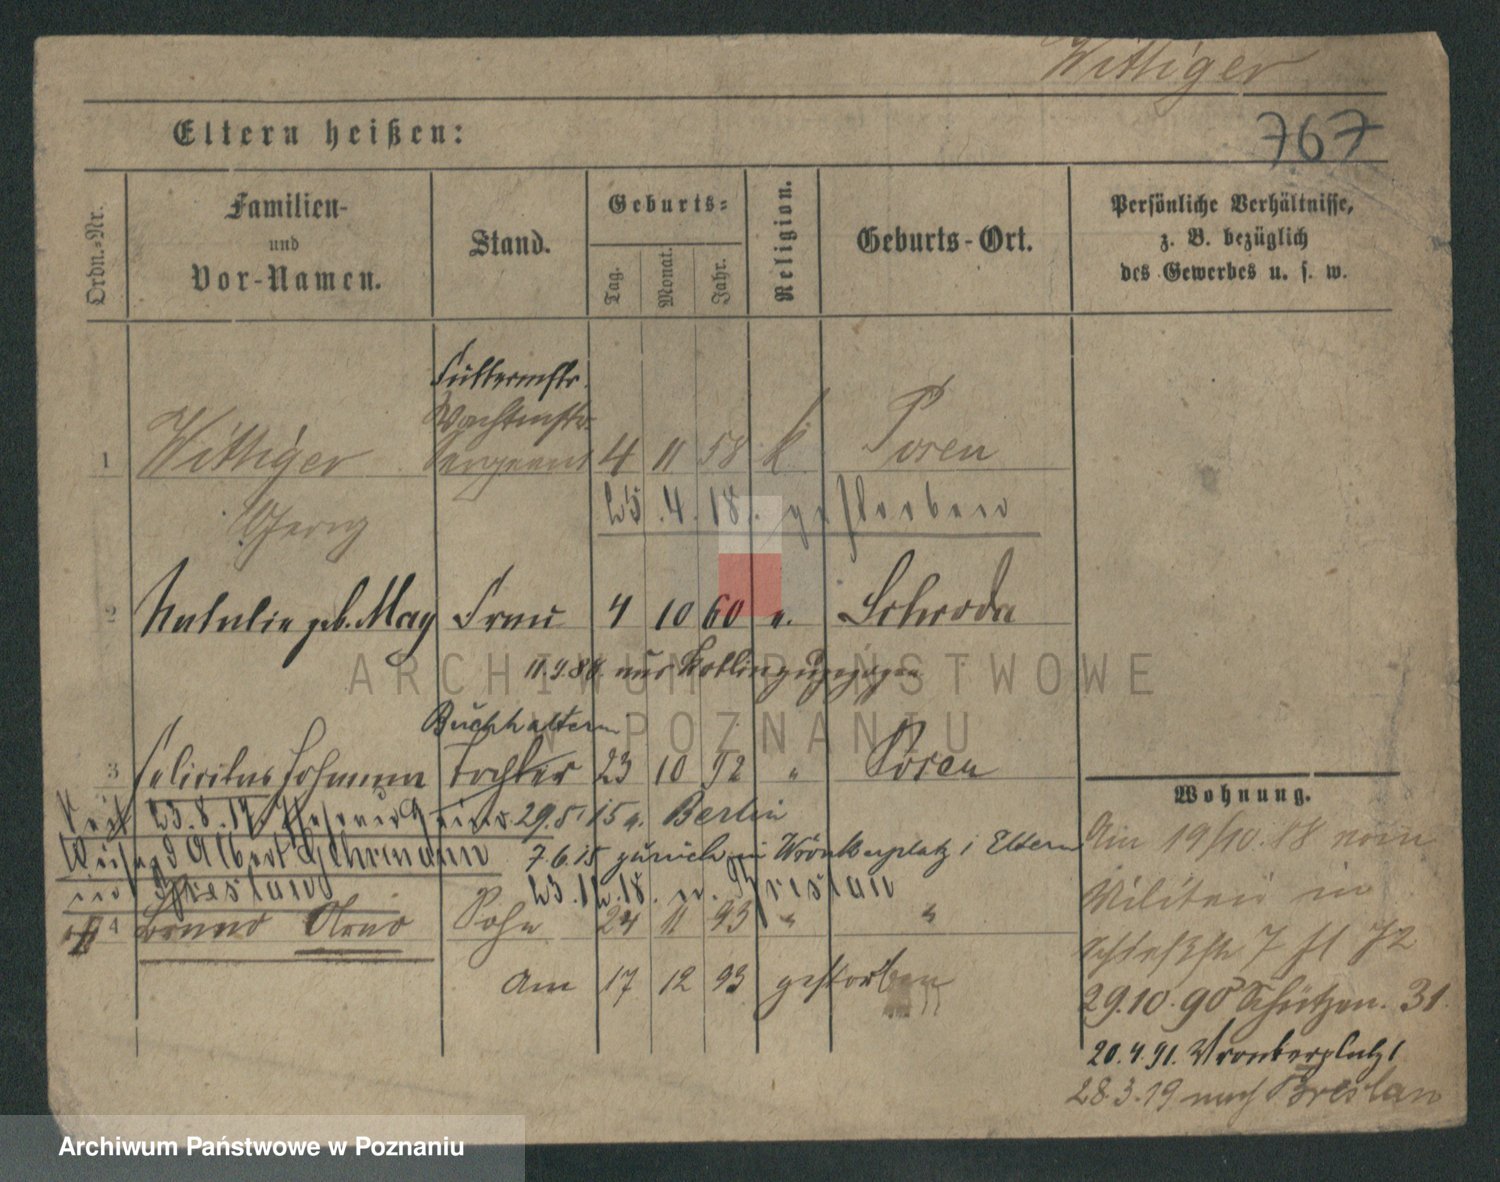 Wittiger
767
Eltern heißen:
Ordn.-Nr.
Familien-
und
Vor-Namen.
Stand.
Geburts-
Tag.
Monat.
Jahr.
Religion.
Geburts-Ort.
Persönliche Verhältnisse,
z. B. bezüglich
des Gewerbes u. s. w.
Futtermstr.
Wachtmstr.
1 Wittiger Sergeant 4 11 58 k. Posen
Georg
25.4.18. gestorben
2 Natalie geb. May Frau 4 10 60 e. Schroda
11.9.88. aus zugezogen
Buchhalterin
3 Felicitas Johanna Tochter 23 10 92 " Posen
seit 23.8.17. 29.5.15 a. Berlin
Albert Gehrmann 7.6.15 zurück Wronkerplatz 1 Eltern
in Breslau 23.12.18. n. Breslau
4 Bruno Arno Sohn 24 11 93 " "
am 17 12 93 gestorben
Wohnung.
Am 19/10.88 vom
Militär in
7 72
29.10.90 Schützen. 31.
20.4.91. Wronkerplatz 1
28.3.19 nach Breslau
ARCHIWUM PAŃSTWOWE
W POZNANIU
Archiwum Państwowe w Poznaniu